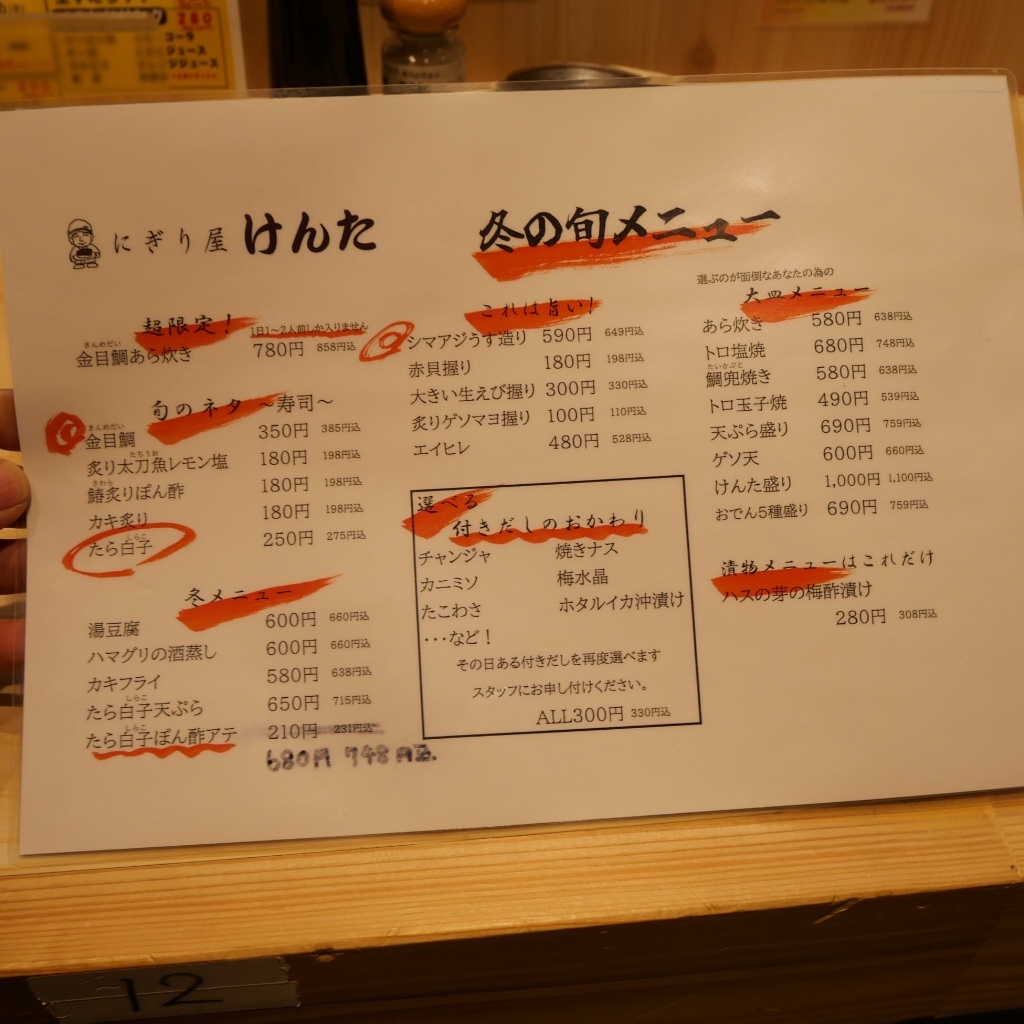 280
コーラ
ジュース
にぎり屋 けんた
冬の旬メニュー
超限定！ 1日1～2人前しか入りません
きんめだい
金目鯛あら炊き 780円 858円込
旬のネタ ～寿司～
きんめだい
金目鯛 350円 385円込
たちうお
炙り太刀魚レモン塩 180円 198円込
さわら
鰆炙りぽん酢 180円 198円込
カキ炙り 180円 198円込
しらこ
たら白子 250円 275円込
冬メニュー
湯豆腐 600円 660円込
ハマグリの酒蒸し 600円 660円込
カキフライ 580円 638円込
しらこ
たら白子天ぷら 650円 715円込
しらこ
たら白子ぽん酢アテ 210円 231円込
680円 748円込
これは旨い！
シマアジうす造り 590円 649円込
赤貝握り 180円 198円込
大きい生えび握り 300円 330円込
炙りゲソマヨ握り 100円 110円込
エイヒレ 480円 528円込
選べる
付きだしのおかわり
チャンジャ 焼きナス
カニミソ 梅水晶
たこわさ ホタルイカ沖漬け
･･･など！
その日ある付きだしを再度選べます
スタッフにお申し付けください。
ALL300円 330円込
選ぶのが面倒なあなたの為の
大皿メニュー
あら炊き 580円 638円込
トロ塩焼 680円 748円込
たいかぶと
鯛兜焼き 580円 638円込
トロ玉子焼 490円 539円込
天ぷら盛り 690円 759円込
ゲソ天 600円 660円込
けんた盛り 1,000円 1,100円込
おでん5種盛り 690円 759円込
漬物メニューはこれだけ
ハスの芽の梅酢漬け
280円 308円込
12